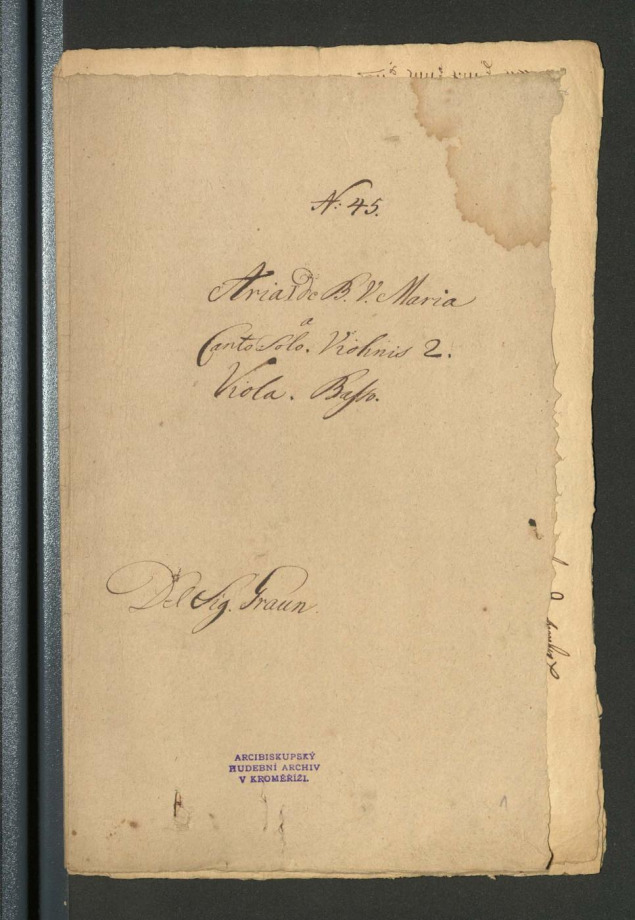 N: 45.
Aria De B. V. Maria
a
Canto Solo. Violinis 2.
Viola. Basso.
Del Sig. Graun.
ARCIBISKUPSKÝ
HUDEBNÍ ARCHIV
V KROMĚŘÍŽI.
1